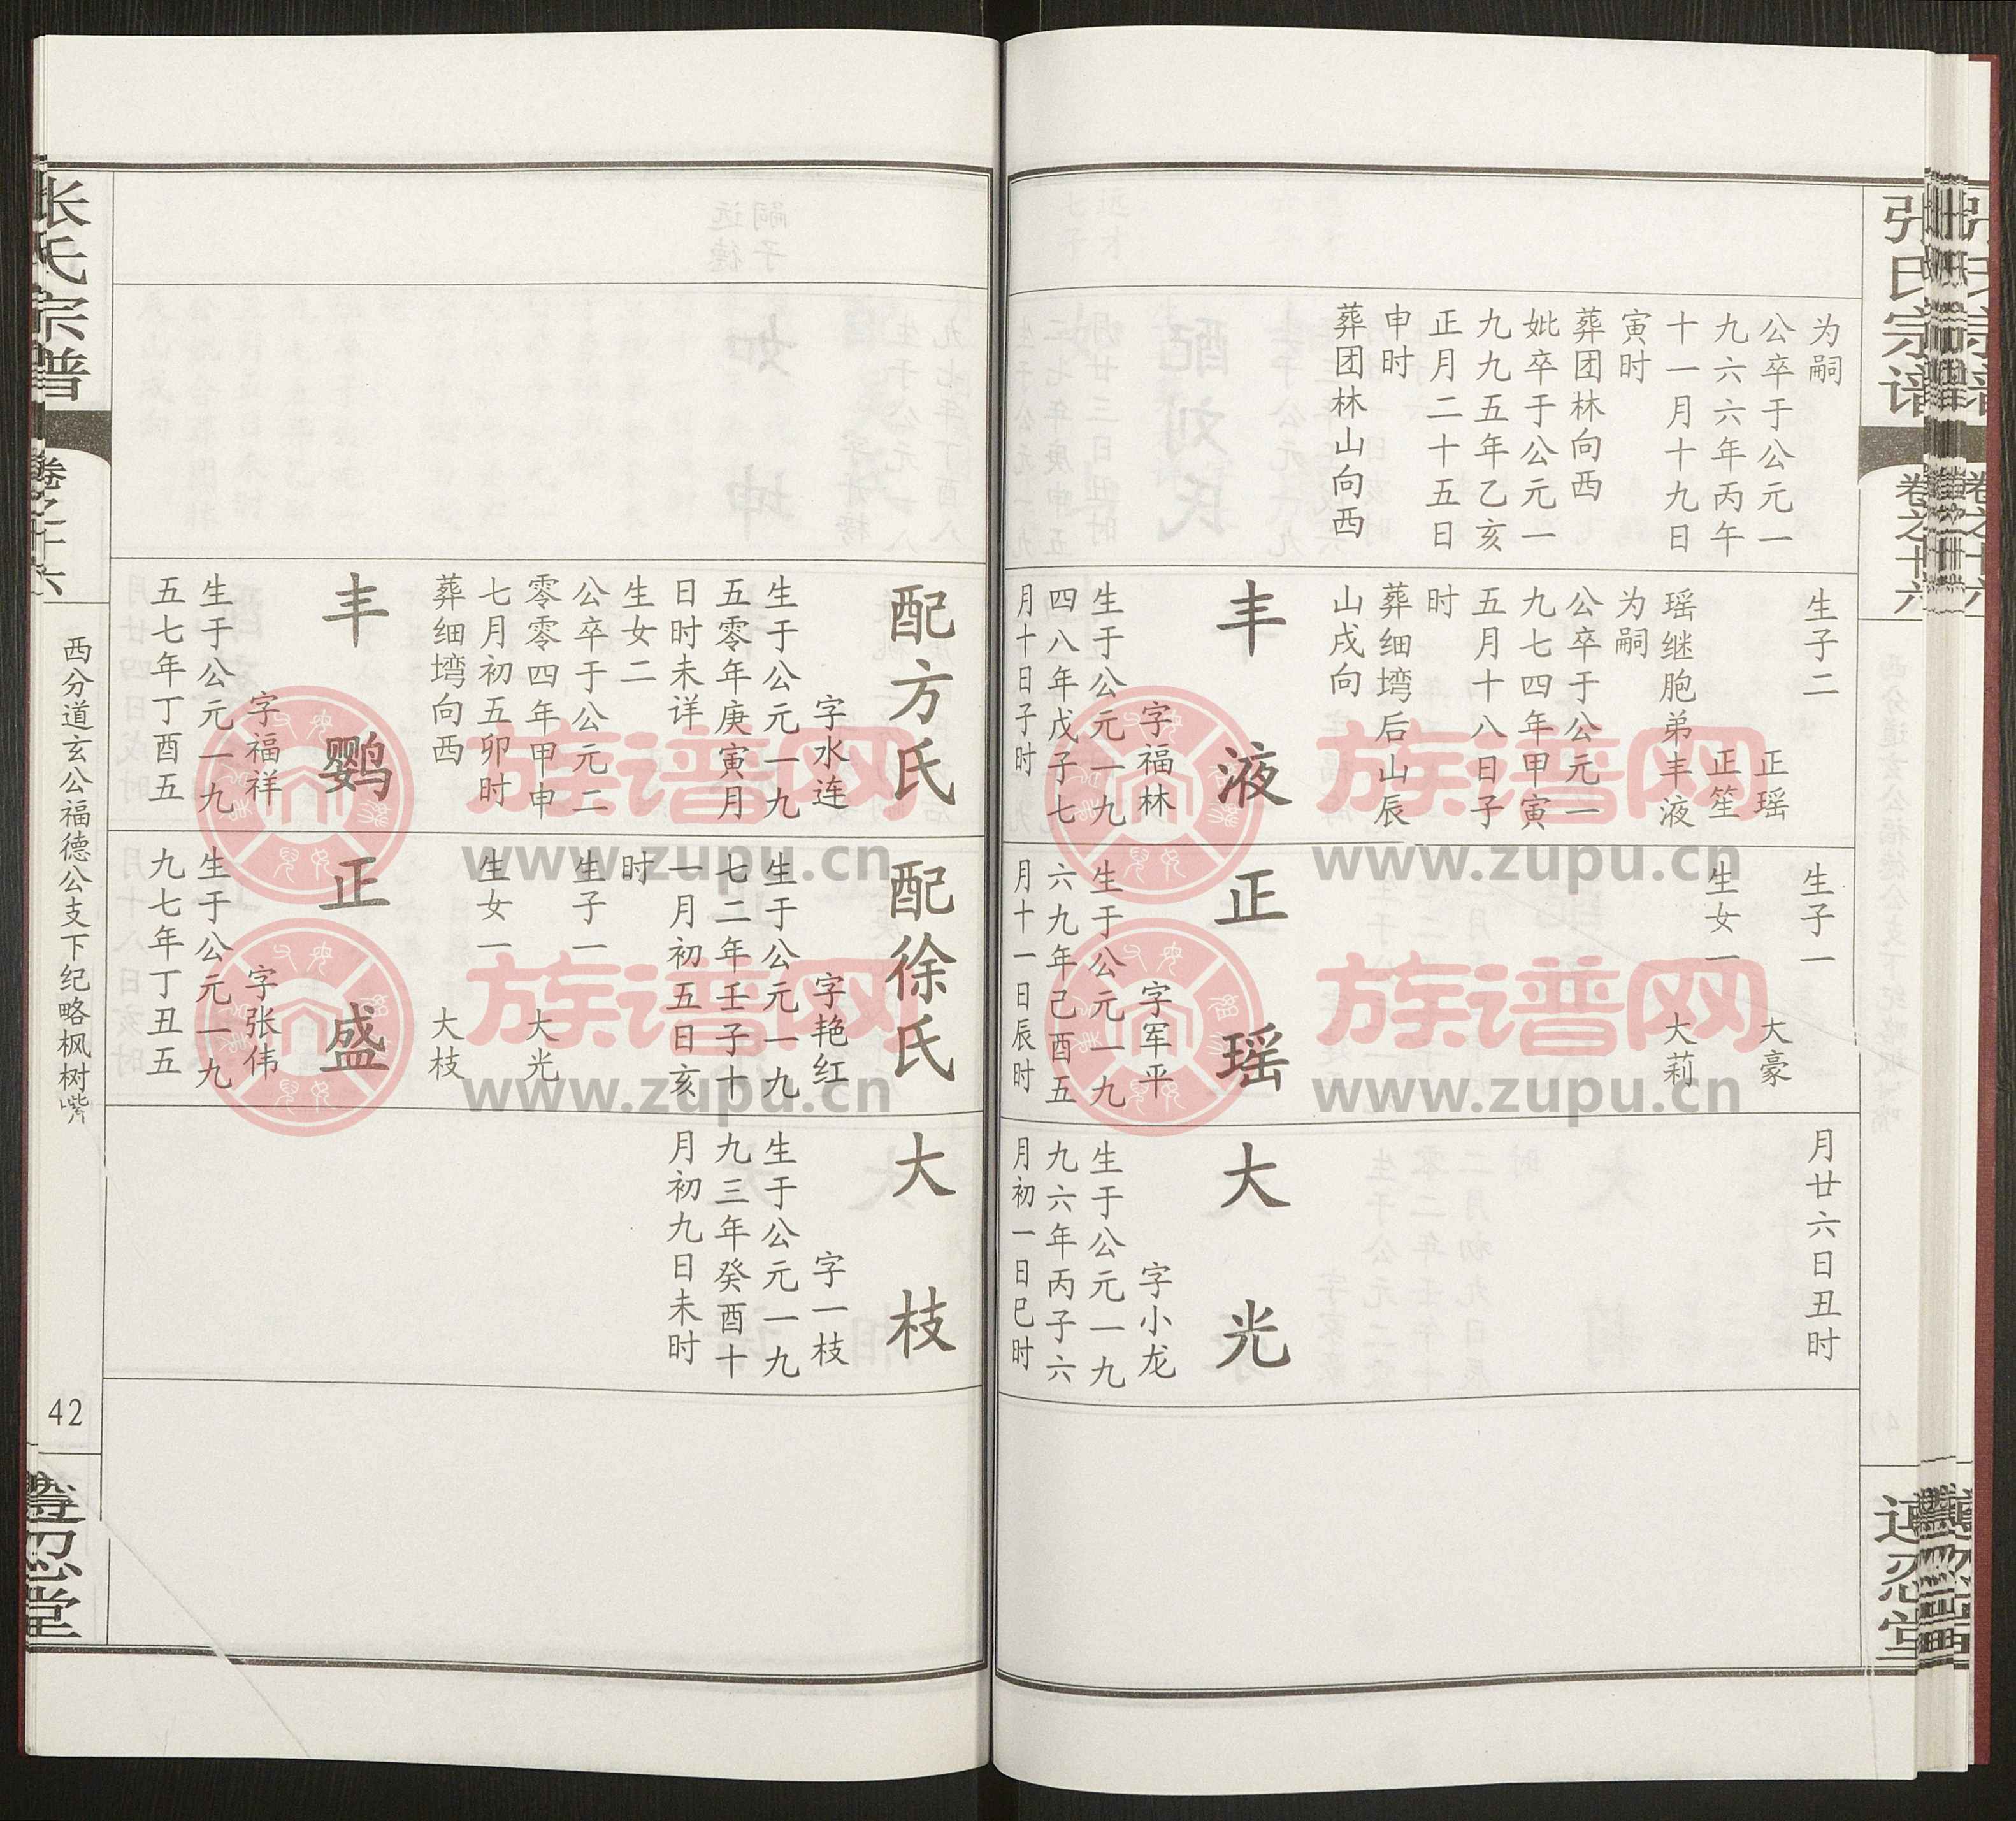 张氏宗谱
卷之十六
为嗣
公卒于公元一
九六六年丙午
十一月十九日
寅时
葬团林向西
妣卒于公元一
九九五年乙亥
正月二十五日
申时
葬团林山向西
生子二
正瑶
正笙
瑶继胞弟丰液
为嗣
公卒于公元一
九七四年甲寅
五月十八日子
时
葬细塆后山辰
山戌向
丰液
字福林
生于公元一九
四八年戊子七
月十日子时
生子一
大豪
生女一
大莉
正瑶
字军平
生于公元一九
六九年己酉五
月十一日辰时
月廿六日丑时
大光
字小龙
生于公元一九
九六年丙子六
月初一日巳时
配方氏
字水连
生于公元一九
五零年庚寅月
日时未详
生女二
公卒于公元二
零零四年甲申
七月初五卯时
葬细塆向西
丰鹦
字福祥
生于公元一九
五七年丁酉五
配徐氏
字艳红
生于公元一九
七二年壬子十
一月初五日亥
时
生子一
大光
生女一
大枝
正盛
字张伟
生于公元一九
九七年丁丑五
大枝
字一枝
生于公元一九
九三年癸酉十
月初九日未时
张氏宗谱
卷之十六
西分道玄公福德公支下纪略枫树嘴
42
忍堂
族谱网
www.zupu.cn
族谱网
www.zupu.cn
族谱网
www.zupu.cn
族谱网
www.zupu.cn